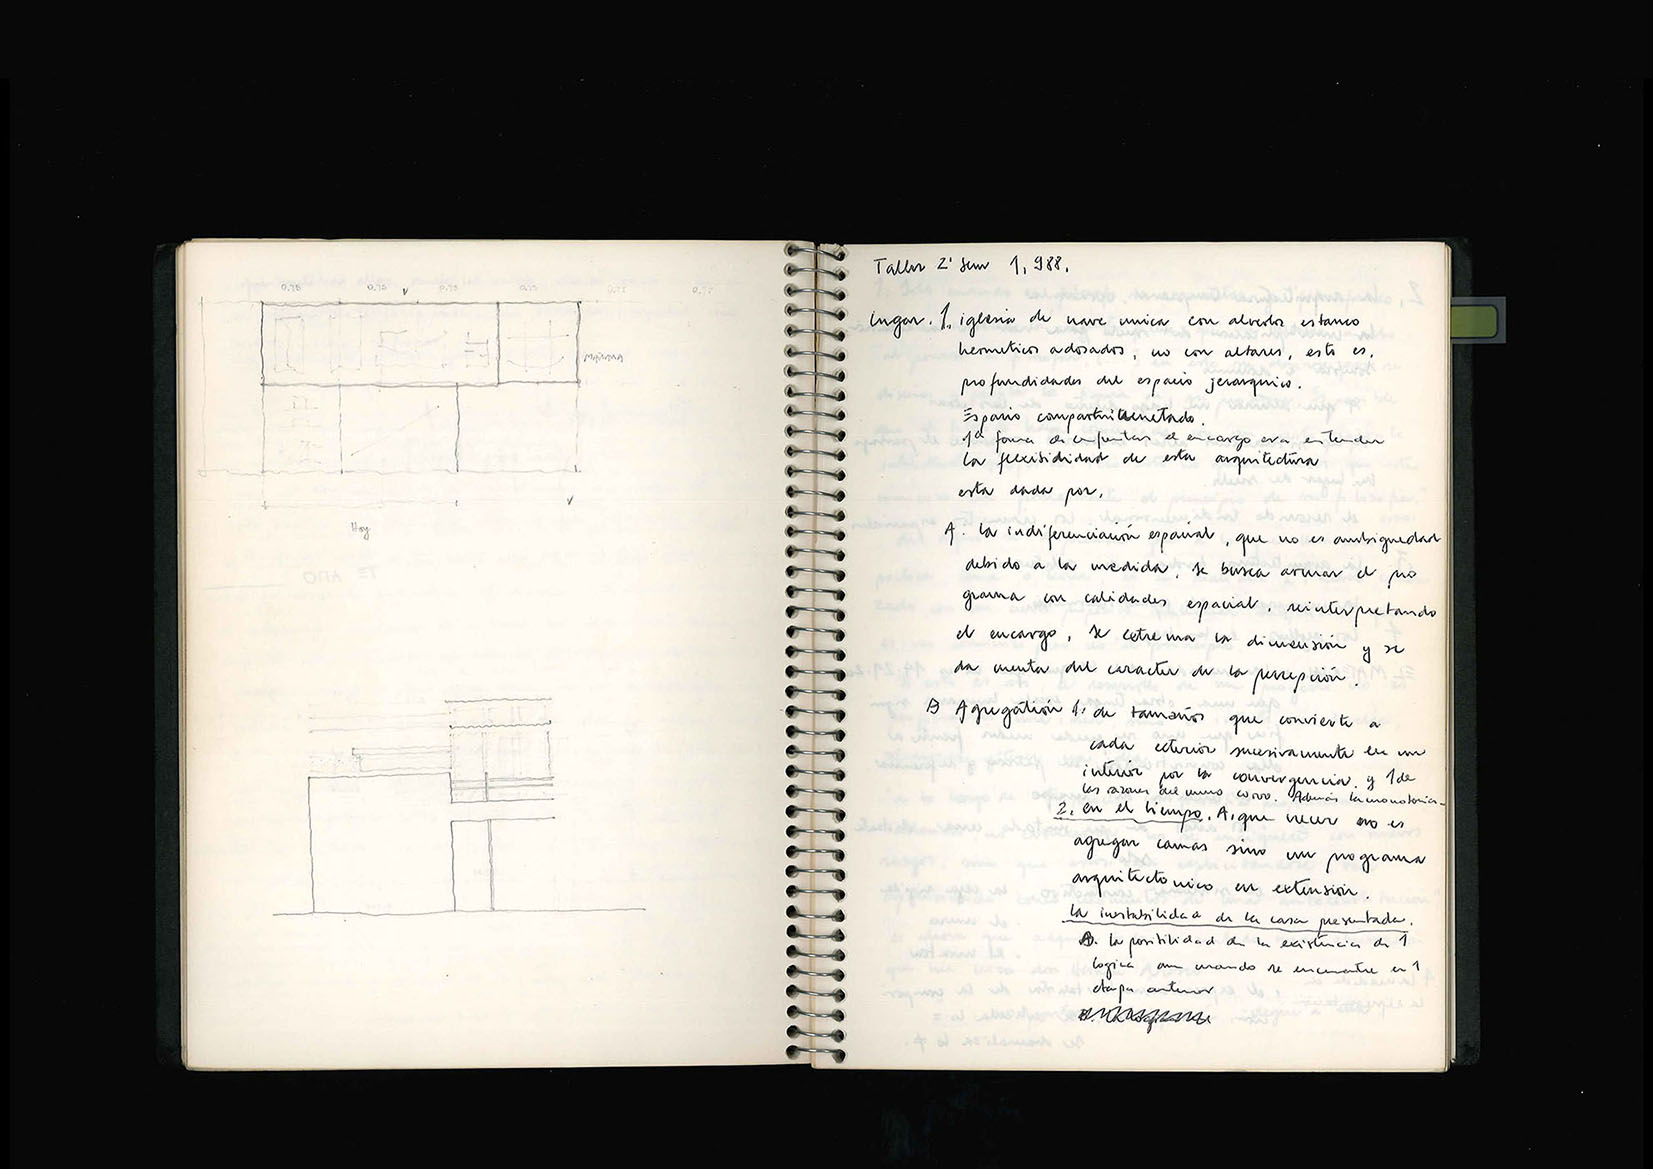 0.75 0.75 0.75 0.75 0.75 0.75
Hoy
Taller 2' Sem 1,988.
Lugar. 1, iglesia de nave unica con alveolos estanco
hermeticos adosados, no con altares, esto es.
profundidades del espacio jerarquico.
Espacio compartimentado.
1ª forma de enfrentar el encargo era entender
la flexisididad de esta arquitectura
esta dada por.
A. la indiferenciación espacial, que no es ambiguedad
debido a la medida, se busca armar el pro
grama con calidades espacial, reinterpretando
el encargo, se extrema la dimensión y se
da cuenta del caracter de la percepción.
B Agregatión 1. de tamaños que convierte a
cada exterior sucesivamente en un
interior por la convergencia, y 1 de
las razones del muro corvo. Además la monotonia-
2. en el tiempo. A, que crecer no es
agregar camas sino un programa
arquitectonico en extensión.
la inestabilidad de la casa presentada.
A. la posibilidad de la existencia de 1
logica aun cuando se encuentre en 1
etapa anterior